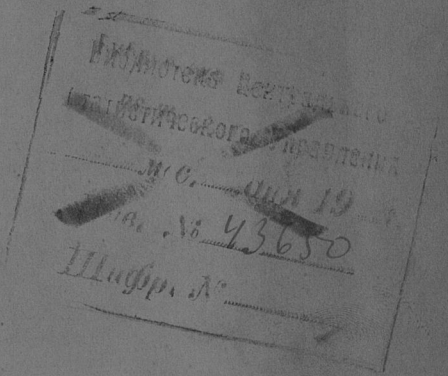 Библиотека Центрального
Статистического Управления
дня 19
№ 43650
Шифр. №